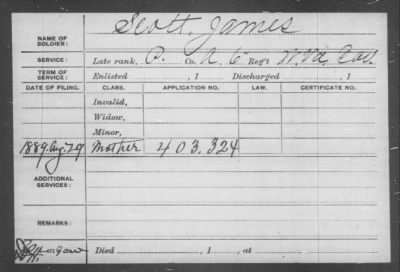 NAME OF SOLDIER: Scott, James
SERVICE: Late rank, P. Co. A, 6" Reg't W. Va. Cav.
TERM OF SERVICE: Enlisted , 1 Discharged , 1
DATE OF FILING. CLASS. APPLICATION NO. LAW. CERTIFICATE NO.
Invalid,
Widow,
Minor,
1889. Aug. 29 Mother 403.324
ADDITIONAL SERVICES:
REMARKS:
Died , 1 , at